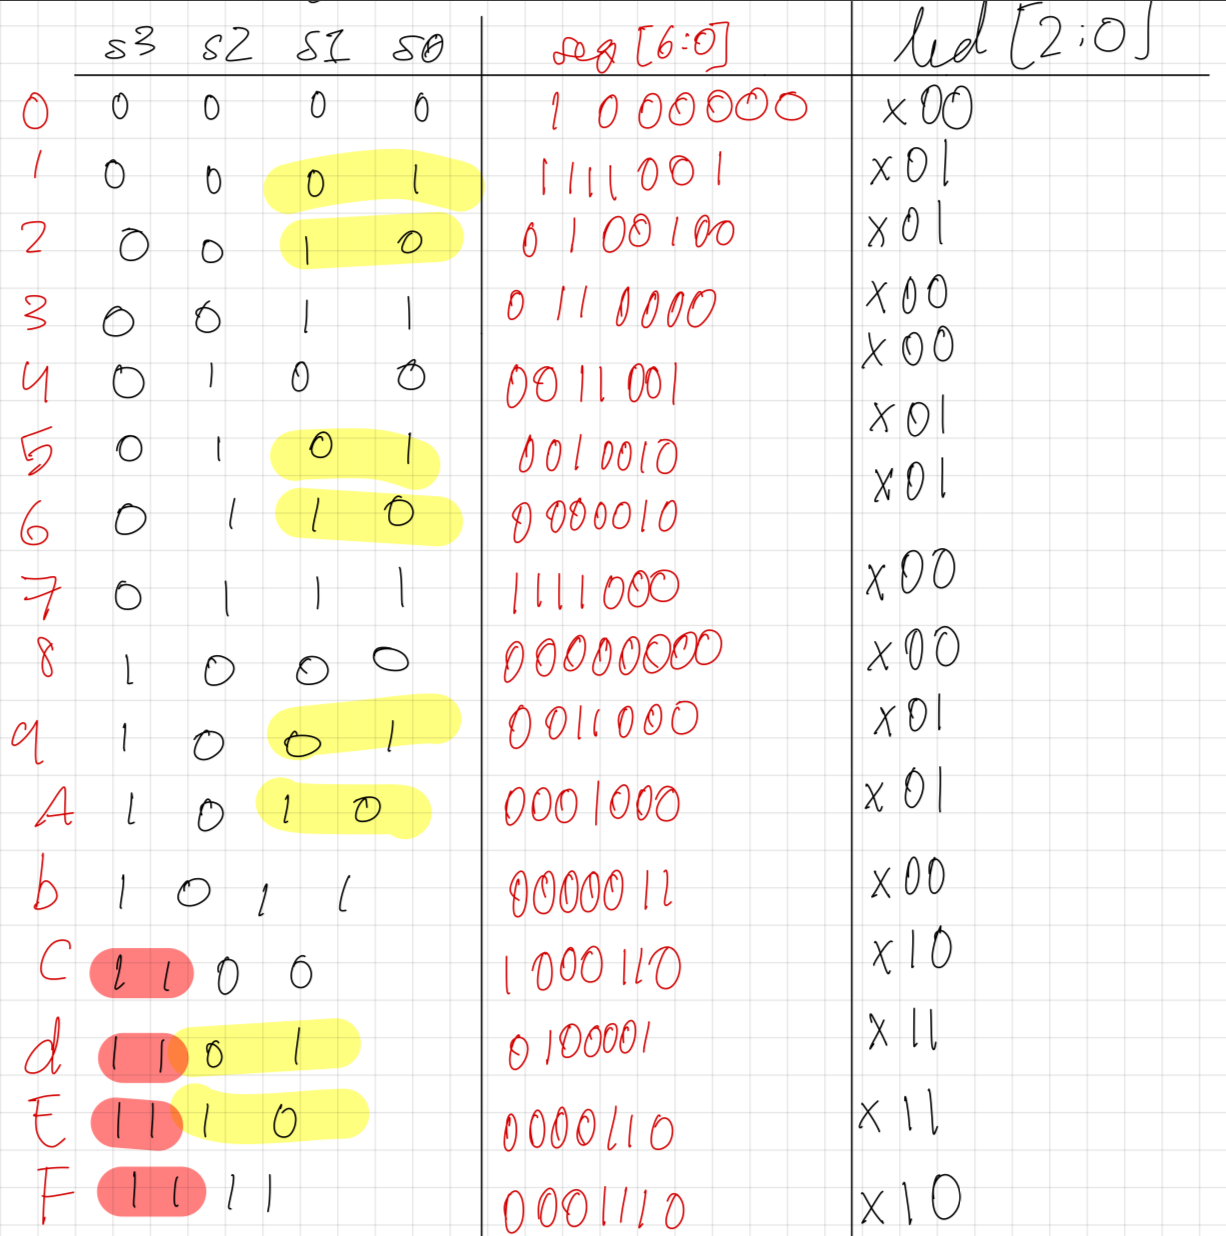 s3 s2 s1 s0 seg [6:0] led [2:0]
0 0 0 0 0 1000000 x00
1 0 0 0 1 1111001 x01
2 0 0 1 0 0100100 x01
3 0 0 1 1 0110000 x00
4 0 1 0 0 0011001 x00
5 0 1 0 1 0010010 x01
6 0 1 1 0 0000010 x01
7 0 1 1 1 1111000 x00
8 1 0 0 0 00000000 x00
9 1 0 0 1 0011000 x01
A 1 0 1 0 0001000 x01
b 1 0 1 1 0000011 x00
C 1 1 0 0 1000110 x10
d 1 1 0 1 0100001 x11
E 1 1 1 0 0000110 x11
F 1 1 1 1 0001110 x10